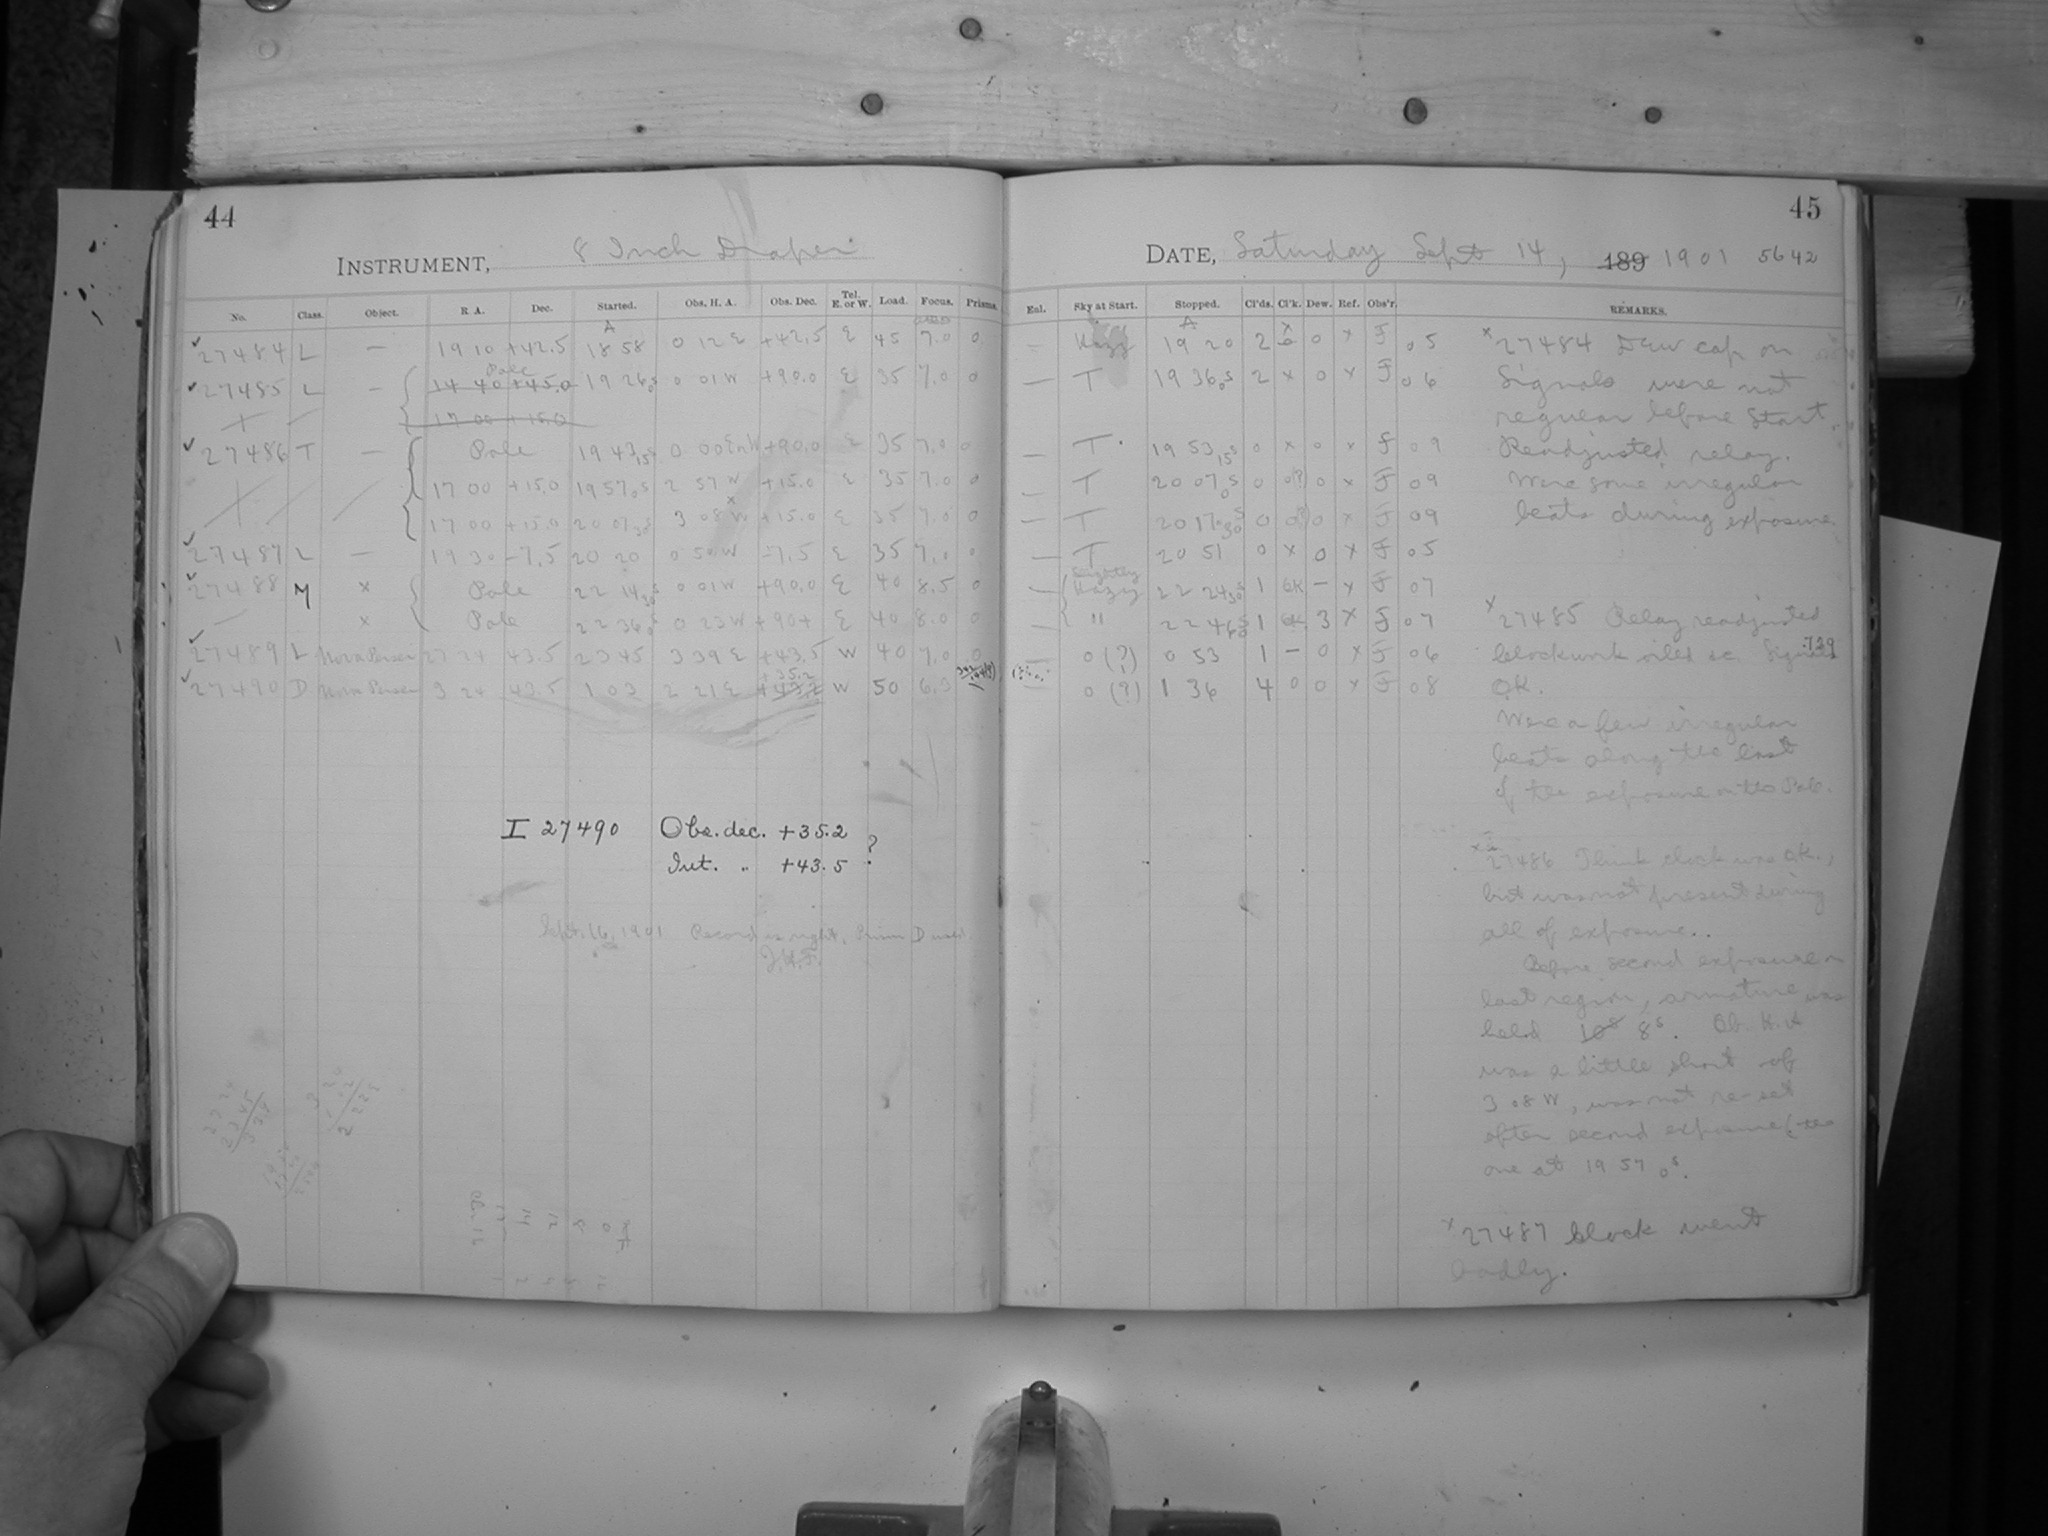 44
INSTRUMENT, 8 Inch Draper
No. Class. Object. R. A. Dec. Started. Obs. H. A. Obs. Dec. Tel. E. or W. Load. Focus. Prisms.
A
27484 L — 19 10 +42.5 18 58 0 12 E +42.5 E 45 7.0 0
Pole
27485 L — 14 40 +45.0 19 26 0s 0 01 W +90.0 E 35 7.0 0
17 00 +15.0
27486 T — Pole 19 43 15s 0 00 E +90.0 E 35 7.0 0
17 00 +15.0 19 57 0s 2 57 W +15.0 E 35 7.0 0
17 00 +15.0 20 07 30s 3 08 W +15.0 E 35 7.0 0
27487 L — 19 30 -7.5 20 20 0 50 W -7.5 E 35 7.0 0
27488 M x Pole 22 14 30s 0 01 W +90.0 E 40 8.5 0
x Pole 22 36 0s 0 23 W +90+ E 40 8.0 0
27489 L Nova Persei 43.5 23 45 3 39 E +43.5 W 40 7.0 0
+35.2
27490 D Nova Persei 3 24 43.5 1 03 2 21 E +43.2 W 50 6.3
I 27490 Obs. dec. +35.2
Int. " +43.5 ?
Sept. 16, 1901 Record is right. Prism D used.
J.H.F.
45
DATE, Saturday Sept 14, 189 1901 5642
Enl. Sky at Start. Stopped. Cl'ds. Cl'k. Dew. Ref. Obs'r. REMARKS.
A
— Hazy 19 20 2 0 0 x F 05
— T 19 36 0s 2 x 0 x F 06
— T 19 53 15s 0 x 0 x F 09
— T 20 07 0s 0 0? 0 x F 09
— T 20 17 30s 0 0? 0 x F 09
— T 20 51 0 x 0 x F 05
— Slightly Hazy 22 24 30s 1 OK — x F 07
— " 22 46 0s 1 OK 3 x F 07
— 0 (?) 0 53 1 — 0 x F 06
0 (?) 1 36 4 0 0 x F 08
x 27484 Dew cap on
Signals were not
regular before start.
Readjusted relay.
Were some irregular
beats during exposure
x 27485 Relay readjusted
clockwork oiled &c. Signals 739
OK.
Were a few irregular
beats along the last
of the exposure on the Pole.
27486 Think clock was OK.,
but was not present during
all of exposure.
Before second exposure on
last region, armature was
held 10s 8s. Ob. H. A
was a little short of
3 08 W, was not re-set
after second exposure (the
one at 19 57 0s.
x 27487 Clock went
badly.